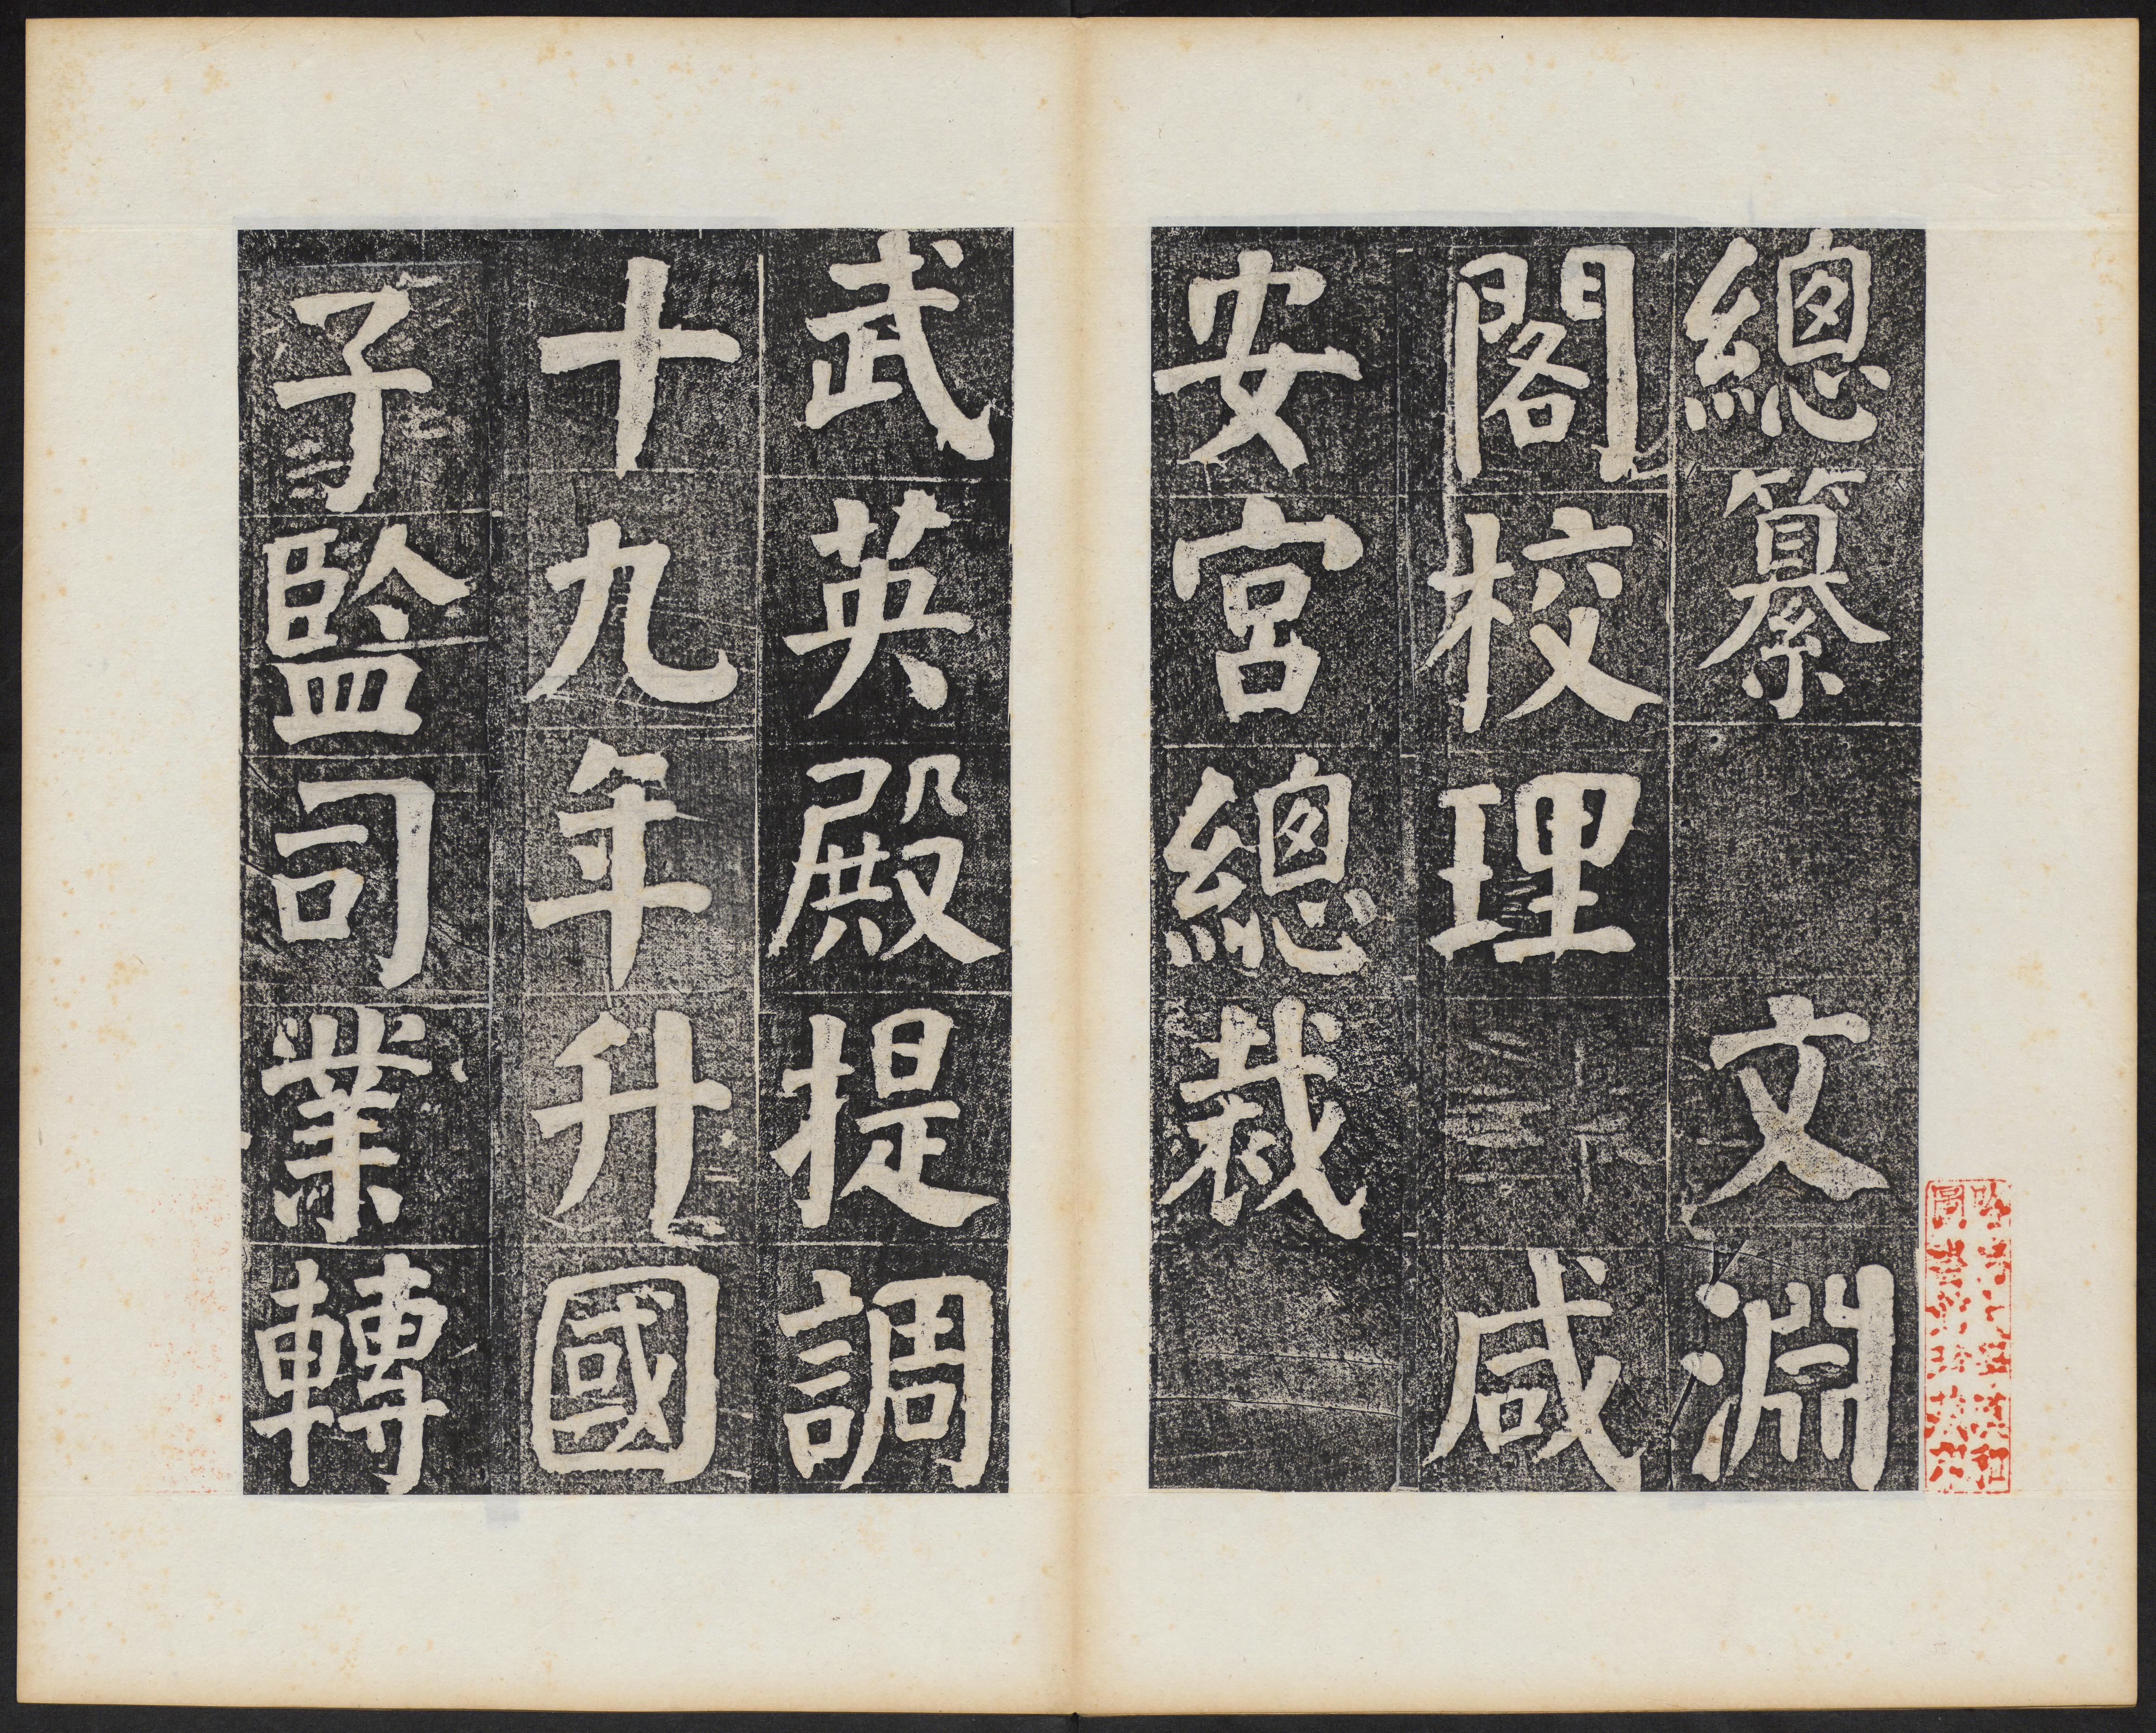 總纂　文淵
閣校理　咸
安宮總裁
武英殿提調
十九年升國
子監司業轉